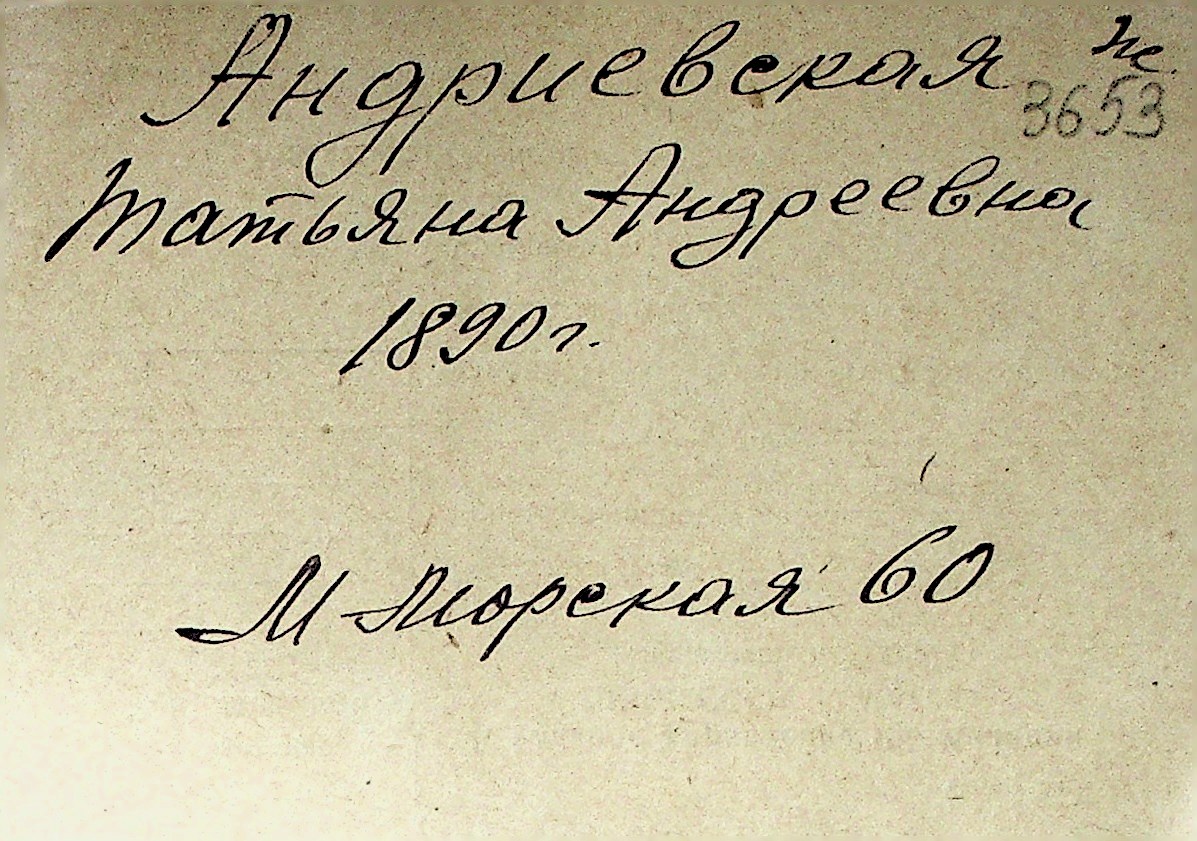 Андриевская ж.
3653
Татьяна Андреевна
1890 г.
М-Морская 60